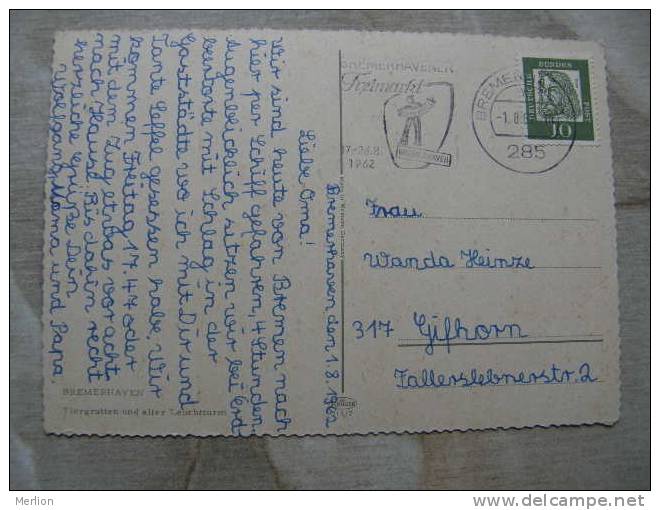 Bremerhaven den, 1.8.1962
Liebe Oma!
Wir sind heute von Bremen nach
hier per Schiff gefahren, 4 Stunden.
Augenblicklich sitzen wir bei Erd-
beertorte mit Schlag in der
Gaststädte wo ich mit Dir und
Tante Leffel gesessen habe. Wir
kommen Freitag 17.47 oder
mit dem Zug etwas vor acht
nach Hause. Bis dahin recht
herzliche Grüße Dein
Wolfgang, Mama und Papa.
BREMERHAVEN
Tiergrotten und alter Leuchtturm
BREMERHAVENER
Freimarkt
17.-26.8.
1962
BREMERHAVEN
-1.8.
285
DEUTSCHE
BUNDES
POST
10
Frau
Wanda Heinze
317 Gifhorn
Fallerslebnerstr. 2
Merlion
http://www.delcampe.net